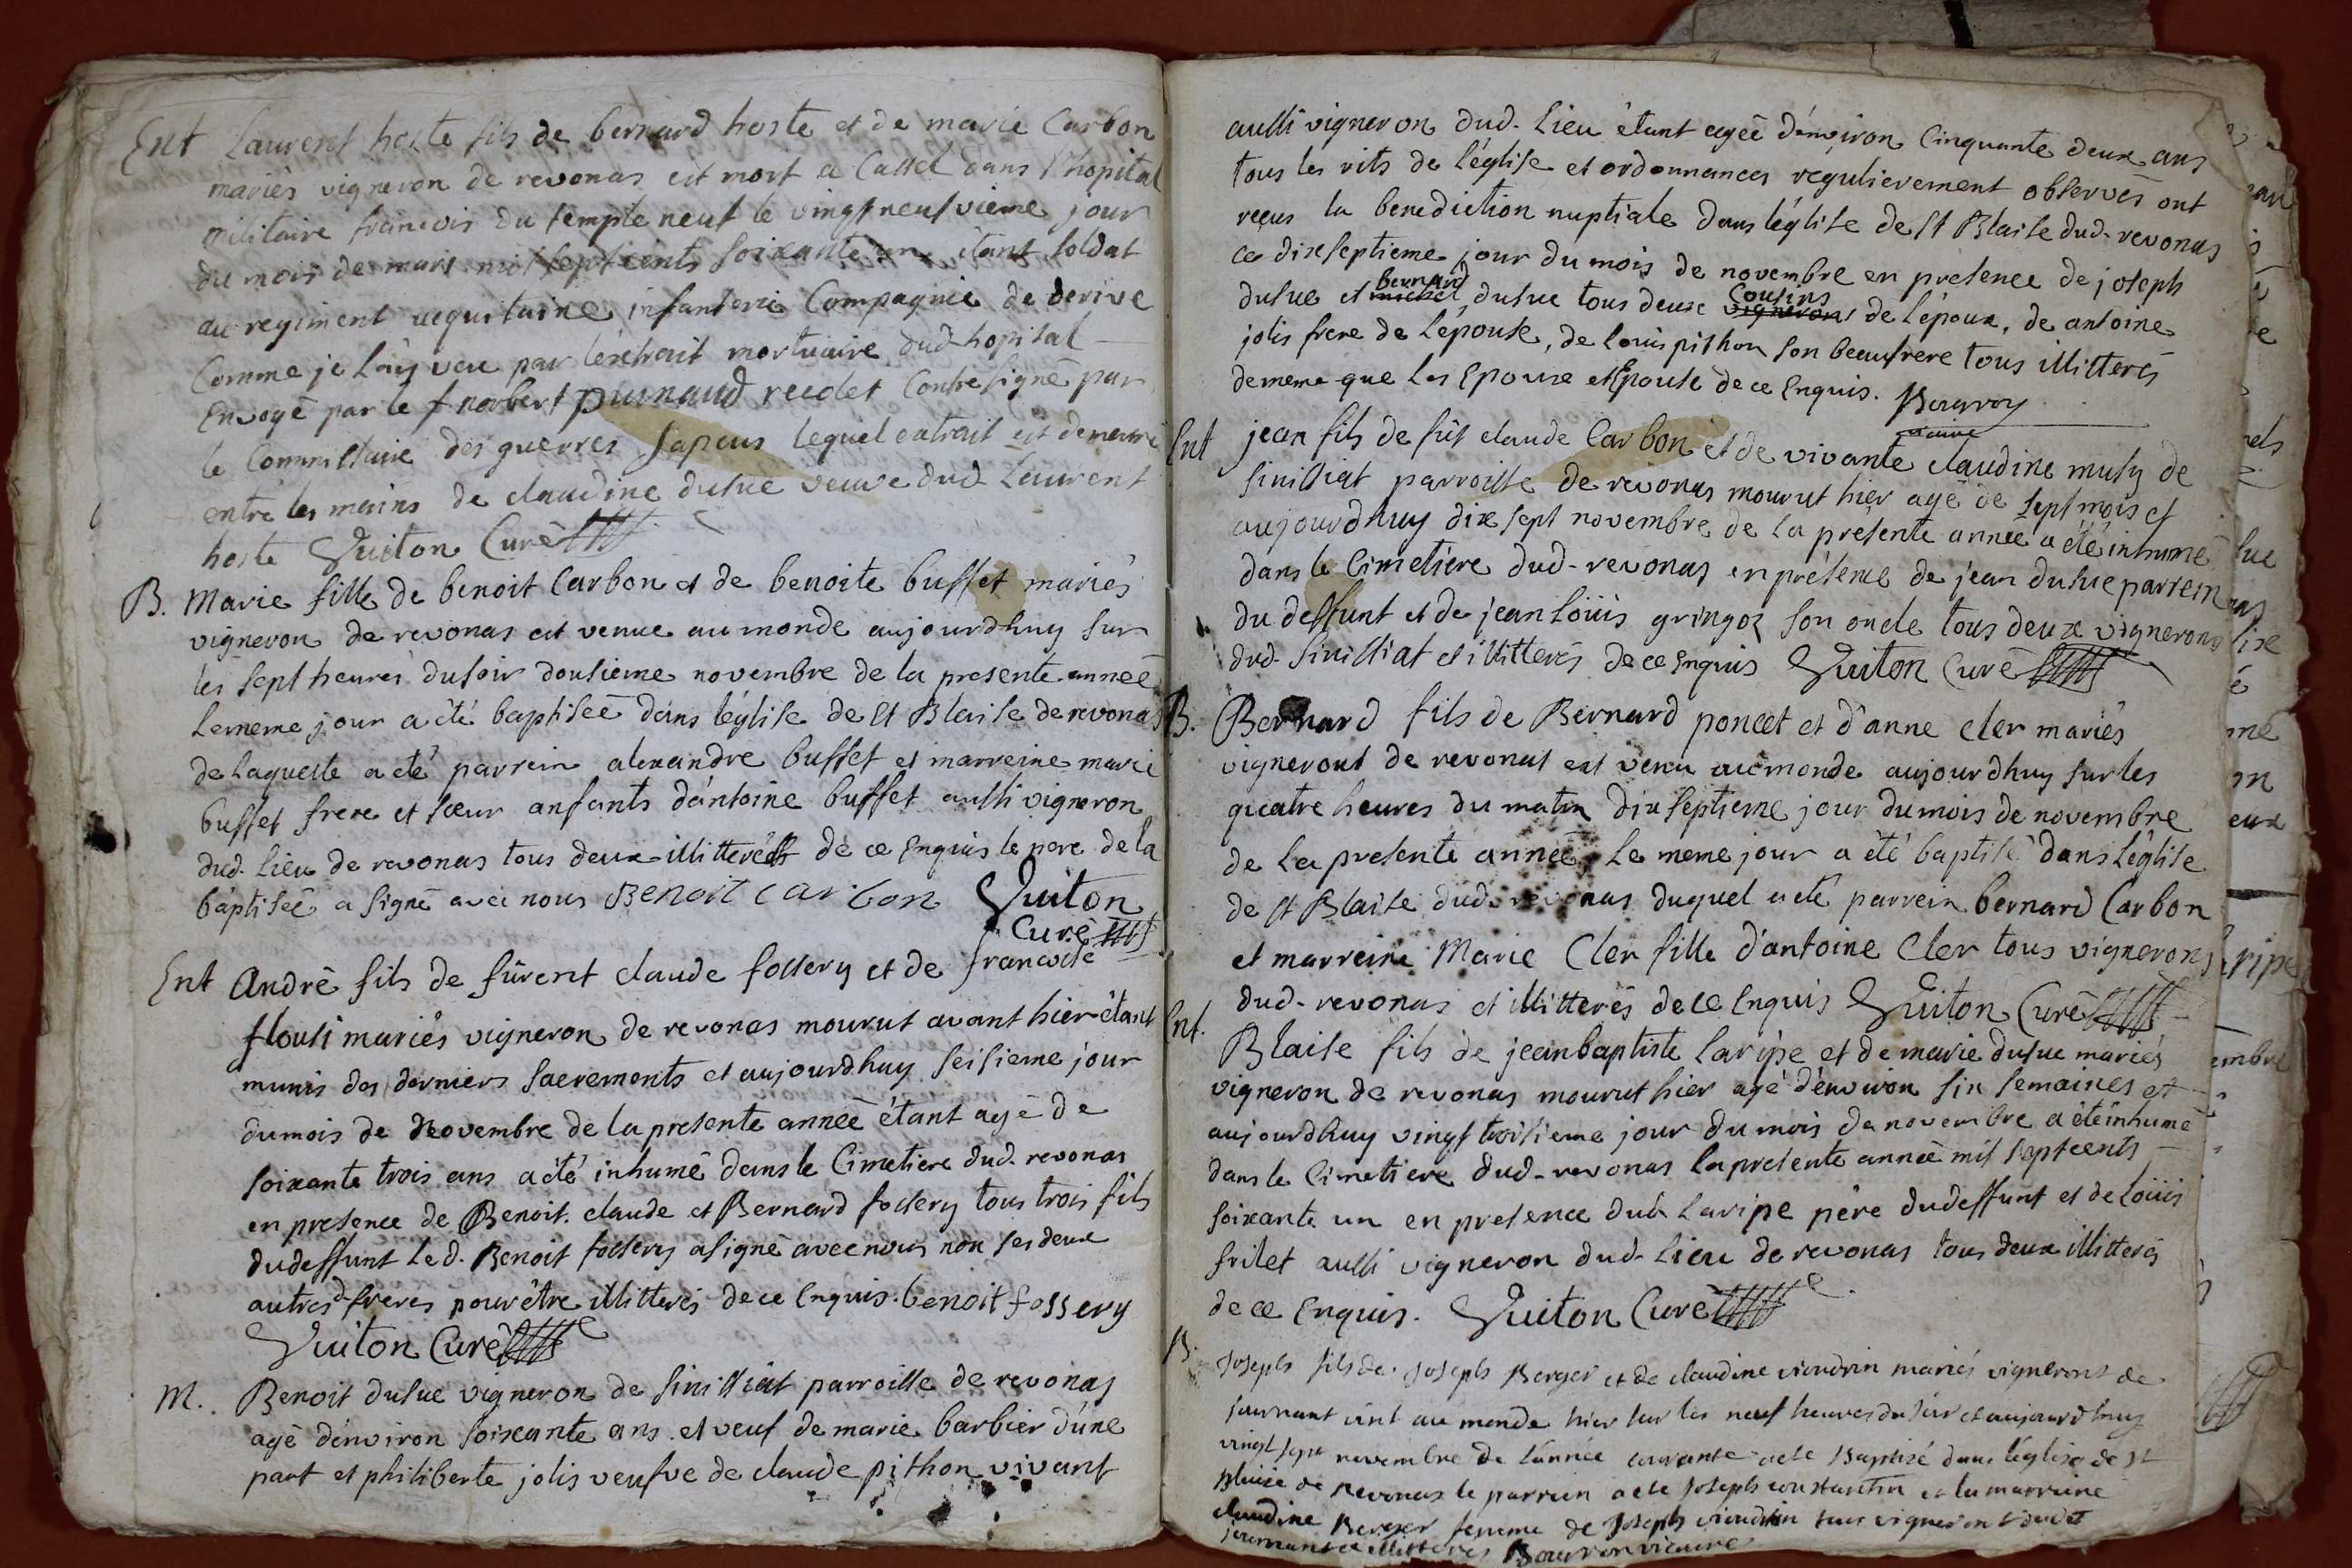 Ent Laurent hoste fils de bernard hoste et de marie Carbon
mariés vigneron de revonas est mort a Cassel dans l'hopital
militaire francois du temple neuf le vingt neufvieme jour
du mois de mars mil sept cents soixante un étant soldat
au regiment aequitaine infanterie Compagnie de derive
Comme je l'ay veu par l'extrait mortuaire dud. hopital
Envoyé par le f norbert recolet Contresigné par
le Commissaire des guerres lequel extrait est demeuré
entre les mains de claudine dusue veuve dud. Laurent
hoste Guiton Curé
B. Marie fille de benoit Carbon et de benoite buffet mariés
vigneron de revonas est venue au monde aujourdhuy sur
les sept heures du soir dousieme novembre de la presente année
le meme jour a été baptisée dans léglise de st Blaise de revonas
de laquelle a eté parrein alexandre buffet et marreine marie
buffet frere et sœur anfants d'antoine buffet aussi vigneron
dud. lieu de revonas tous deux illitterés de ce Enquis le pere de la
baptisée a signé avec nous Benoit carbon Guiton
Curé
Ent André fils de fûrent claude fossery et de francoise
flousi mariés vigneron de revonas mourut avant hier étant
munis des derniers sacrements et aujourdhuy seisieme jour
du mois de Novembre de la presente année étant agé de
soixante trois ans a été inhumé dans le Cimetiere dud. revonas
en presence de Benoit. claude et Bernard fossery tous trois fils
du deffunt led. Benoit fossery a signé avec nous non ses deux
autres freres pour être illitterés de ce Enquis. benoit fossery
Guiton Curé
M. Benoit dusue vigneron de sinissiat parroisse de revonas
agé d'environ soixante ans et veuf de marie barbier d'une
part et philiberte jolis veufve de claude pithon vivant
aussi vigneron dud. Lieu étant agée d'environ Cinquante deux ans
tous les rits de l'église et ordonnances régulierement observés ont
reçus la benediction nuptiale dans léglise de st Blaise dud. revonas
ce dixseptieme jour du mois de novembre en presence de joseph
dusue et michel Bernard dusue tous deux vignerons Cousins de l'époux, de antoine
jolis frere de l'épouse, de louis pithon son beaufrere tous illitterés
de meme que les Epoux et Epouse de ce Enquis.
vicaire
Ent jean fils de fût claude Carbon et de vivante claudine musy de
sinissiat parroisse de revonas mourut hier agé de sept mois et
aujourdhuy dix sept novembre de la presente année a été inhumé
dans le Cimetiere dud. revonas en présence de jean dusue parrein
du deffunt et de jean loüis gringoz son oncle tous deux vignerons
dud. sinissiat et illitterés de ce Enquis Guiton Curé
B. Bernard fils de Bernard poncet et d'anne cler mariés
vignerons de revonas est venu au monde aujourdhuy sur les
quatre heures du matin dix septieme jour du mois de novembre
de la presente année, le meme jour a été baptisé dans l'église
de st Blaise dud. revonas duquel a eté parrein bernard Carbon
et marreine Marie Cler fille d'antoine Cler tous vignerons
dud. revonas et illitterés de ce Enquis Guiton Curé
Ent. Blaise fils de jeanbaptiste laripe et de marie dusue mariés
vigneron de revonas mourut hier agé d'environ six semaines et
aujourdhuy vingt troisieme jour du mois de novembre a été inhumé
dans le Cimetiere dud. revonas la presente année mil septcents
soixante un en presence dud. Laripe père du deffunt et de loüis
frilet aussi vigneron dud. Lieu de revonas tous deux illitterés
de ce Enquis. Guiton Curé
B. Joseph fils de Joseph Berger et de claudine viaudrin mariés vignerons de
journant vint au monde hier sur les neuf heures du soir et aujourdhuy
vingt sept novembre de l'année courante a eté Baptisé dans l'église de st
Blaise de Revonas le parrein a eté Joseph constantin et la marreine
claudine Berger femme de Joseph viaudrin tous vignerons dudit
journant et illitterés vicaire